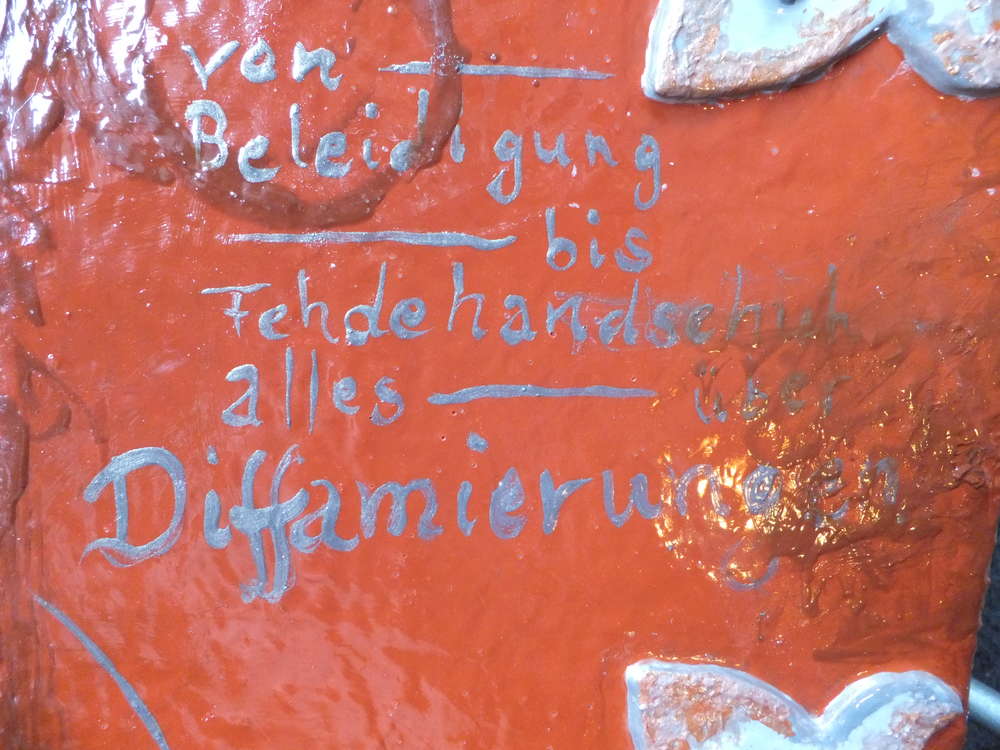 von —
Beleidigung
— bis
Fehdehandschuh
alles — über
Diffamierungen